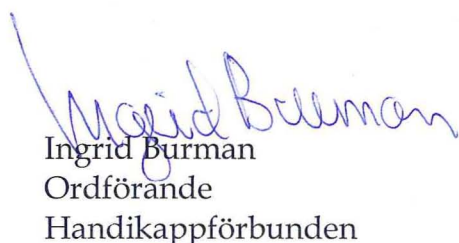 Ingrid Burman
Ingrid Burman
Ordförande
Handikappförbunden